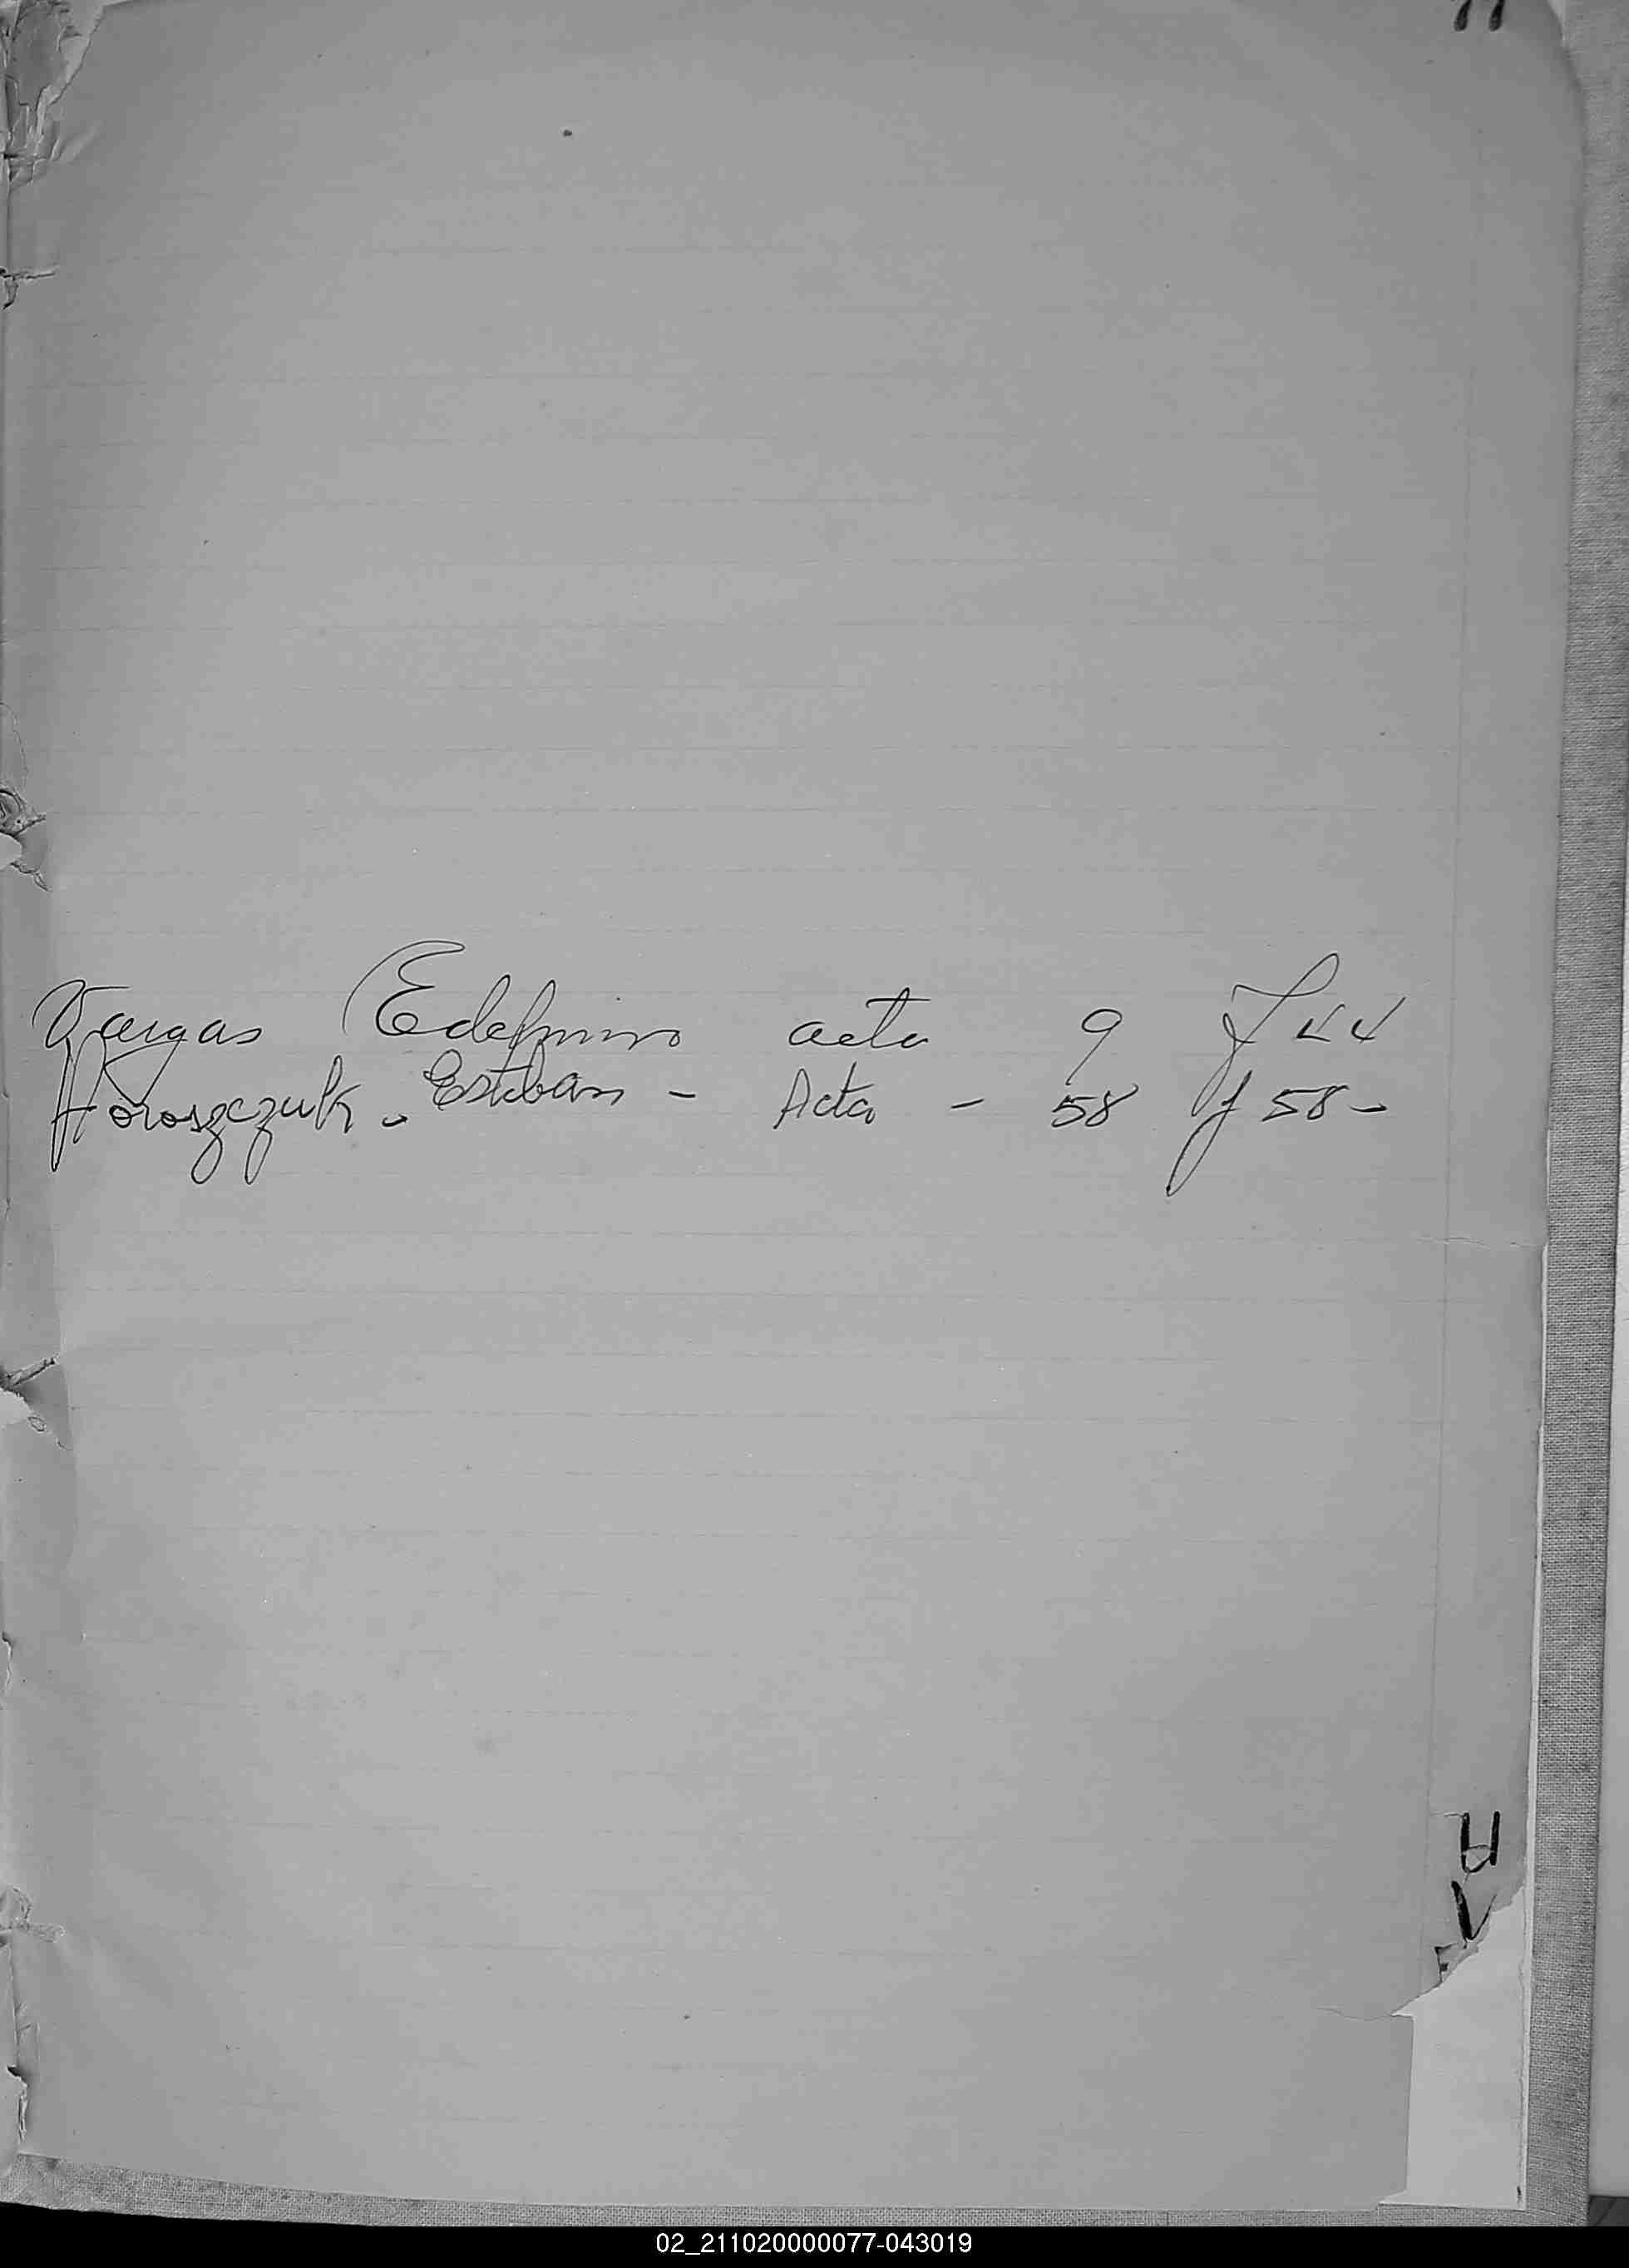 Vargas Edelmiro acta 9 f 44
Horoszczuk - Esteban - Acta - 58 f 58 -
U
V
02_211020000077-043019